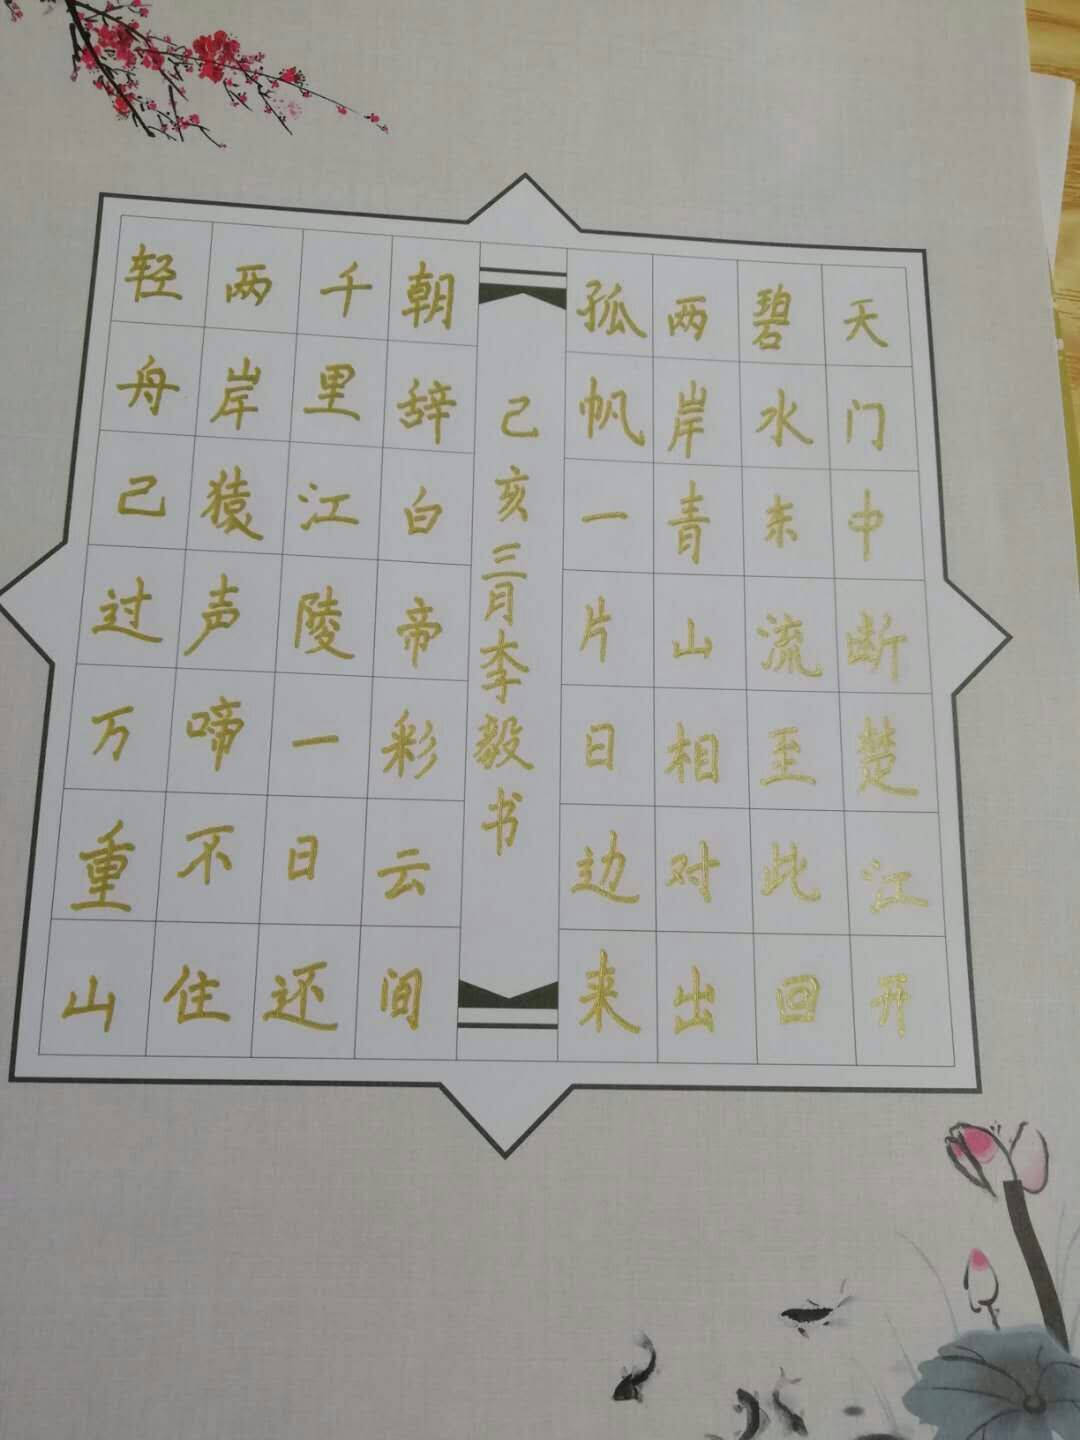 天门中断楚江开
碧水东流至此回
两岸青山相对出
孤帆一片日边来
己亥三月李毅书
朝辞白帝彩云间
千里江陵一日还
两岸猿声啼不住
轻舟己过万重山